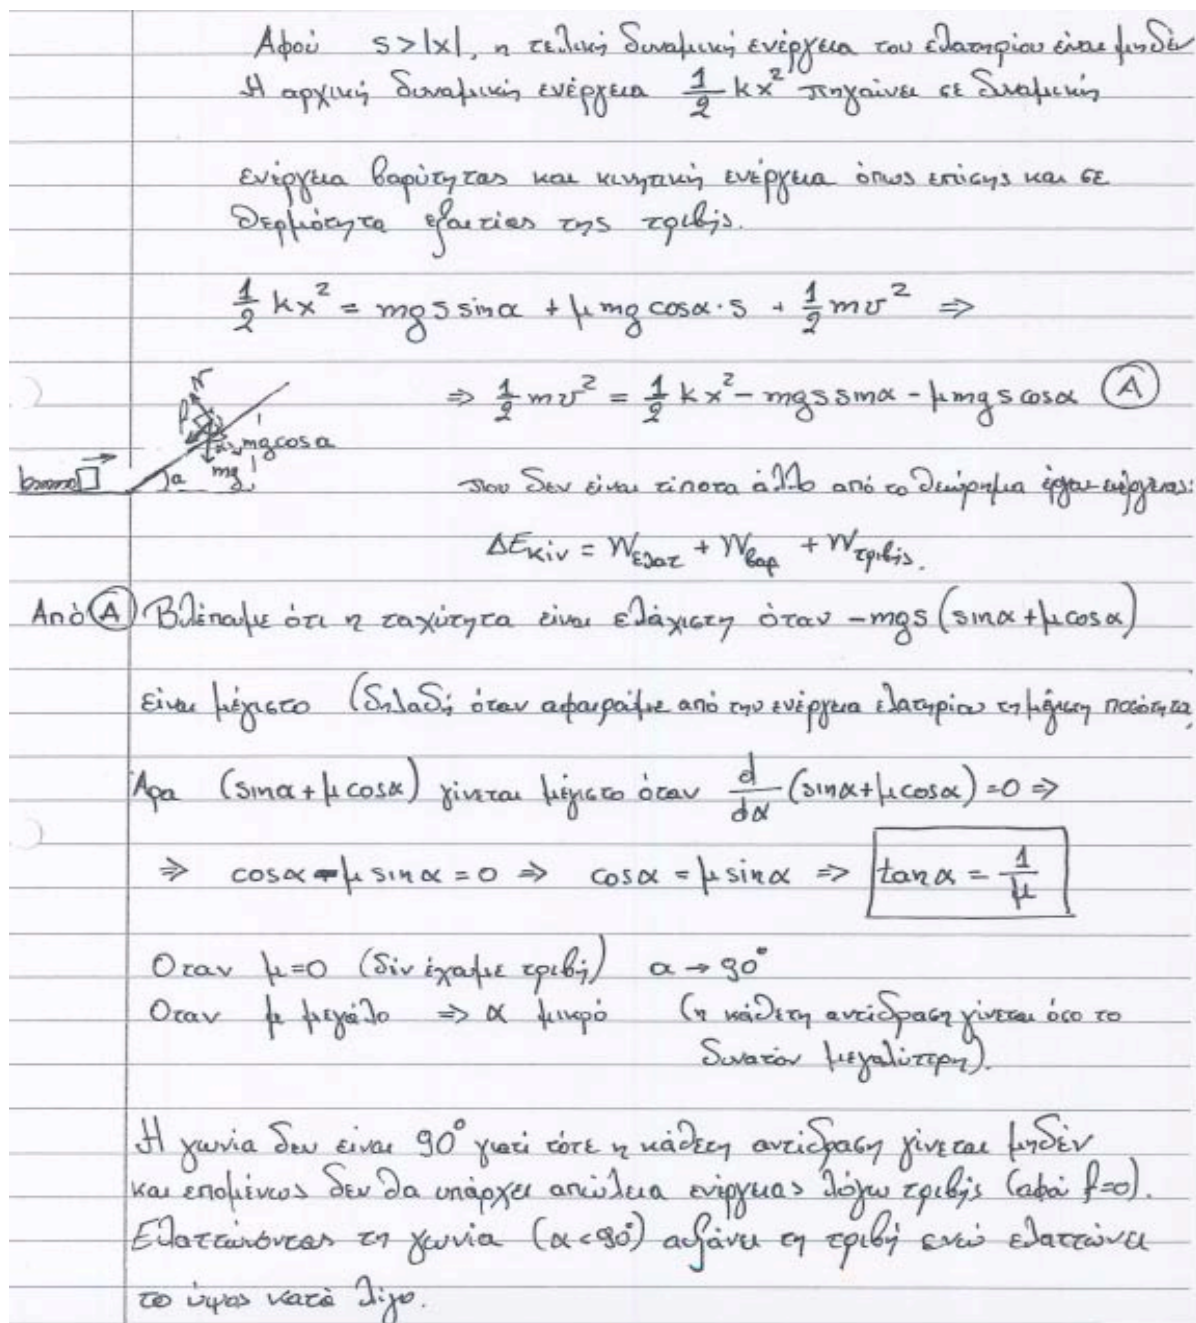 Αφού s > |x|, η τελική δυναμική ενέργεια του ελατηρίου είναι μηδέν
Η αρχική δυναμική ενέργεια 1/2 kx² πηγαίνει σε δυναμική
ενέργεια βαρύτητας και κινητική ενέργεια όπως επίσης και σε
θερμότητα εξαιτίας της τριβής.
1/2 kx² = mg s sinα + μ mg cosα · s + 1/2 mv² ⇒
⇒ 1/2 mv² = 1/2 kx² - mgs sinα - μmgs cosα Ⓐ
N
f
mgcosα
mg
α
που δεν είναι τίποτα άλλο από το θεώρημα έργου-ενέργειας:
ΔEκιν = Wελατ + Wβαρ + Wτριβής.
Από Ⓐ Βλέπουμε ότι η ταχύτητα είναι ελάχιστη όταν -mgs (sinα + μcosα)
είναι μέγιστο (δηλαδή όταν αφαιρούμε από την ενέργεια ελατηρίου τη μέγιστη ποσότητα,
Άρα (sinα + μcosα) γίνεται μέγιστο όταν d/dα (sinα+μcosα) = 0 ⇒
⇒ cosα - μ sinα = 0 ⇒ cosα = μ sinα ⇒ tanα = 1/μ
Όταν μ=0 (δεν έχουμε τριβή) α → 90°
Όταν μ μεγάλο ⇒ α μικρό (η κάθετη αντίδραση γίνεται όσο το
δυνατόν μεγαλύτερη).
Η γωνία δεν είναι 90° γιατί τότε η κάθετη αντίδραση γίνεται μηδέν
και επομένως δεν θα υπάρχει απώλεια ενέργειας λόγω τριβής (αφού f=0).
Ελαττώνοντας τη γωνία (α<90°) αυξάνει τη τριβή ενώ ελαττώνει
το ύψος κατά λίγο.